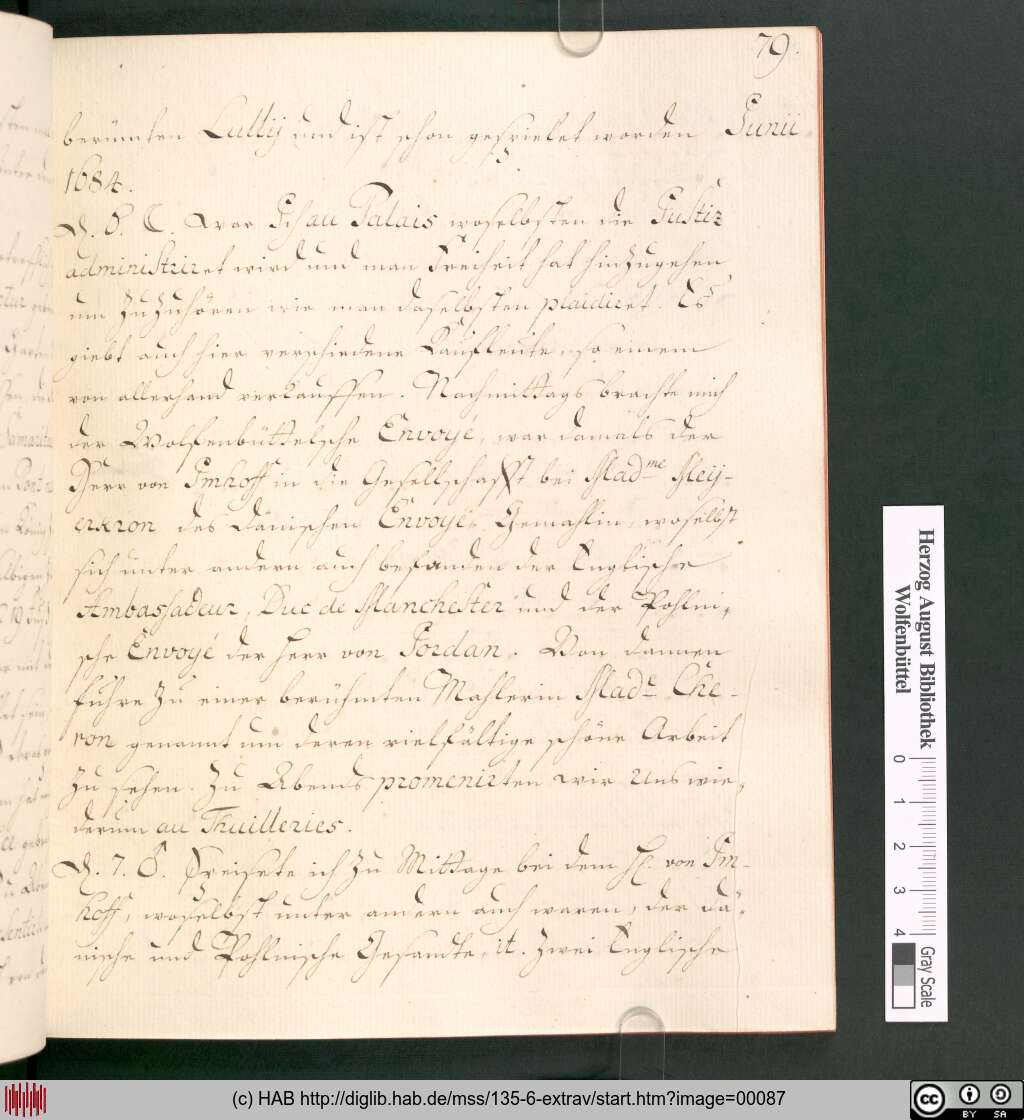 79.
berümten Lullij und ist schon gespielet worden Junii
1684.
D. 6. ☾. War Ich au Palais woselbsten die Justiz
administriret wird und man Freiheit hat hinzugehen
um zuzuhören wie man daselbsten plaidiret. Es
giebt auch hier verschiedene Kaufleute, so einem
von allerhand verkauffen. Nachmittags brachte mich
der Wolfenbüttelsche Envoyé, war damals der
Herr von Imhoff in die Gesellschafft bei Madme Mey-
erkron des dänischen Envoyés Gemahlin, woselbst
sich unter andern auch befunden der Englische
Ambassadeur, Duc de Manchester und der Pohlni-
sche Envoyé der Herr von Jordan. Von dannen
fuhre zu einer berühmten Mahlerin Made Che-
ron genannt um deren vielfältige schöne Arbeit
zu sehen. Zu Abends promenirten wir Uns wie-
derum au Thuilleries.
D. 7. ♂. Speisete ich zu Mittage bei dem H. von Im-
hoff, woselbst unter andern auch waren, der dä-
nische und Pohlnische Gesandte, it. zwei Englische
Herzog August Bibliothek
Wolfenbüttel
0 1 2 3 4
Gray Scale
(c) HAB http://diglib.hab.de/mss/135-6-extrav/start.htm?image=00087
cc BY SA